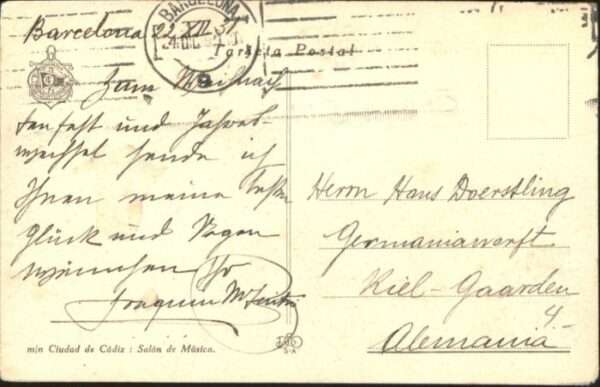 Barcelona 22 XII 31
BARCELONA
Tarjeta Postal
Zum Weihnach
tenfest und Jahres-
wechsel sende ich
Ihnen meine besten
Glück und Segen
wünschen Ihr
Joaquin
Herrn Hans Doerstling
Germaniawerft
Kiel-Gaarden
4.-
Alemania
m/n Ciudad de Cádiz : Salón de Música.